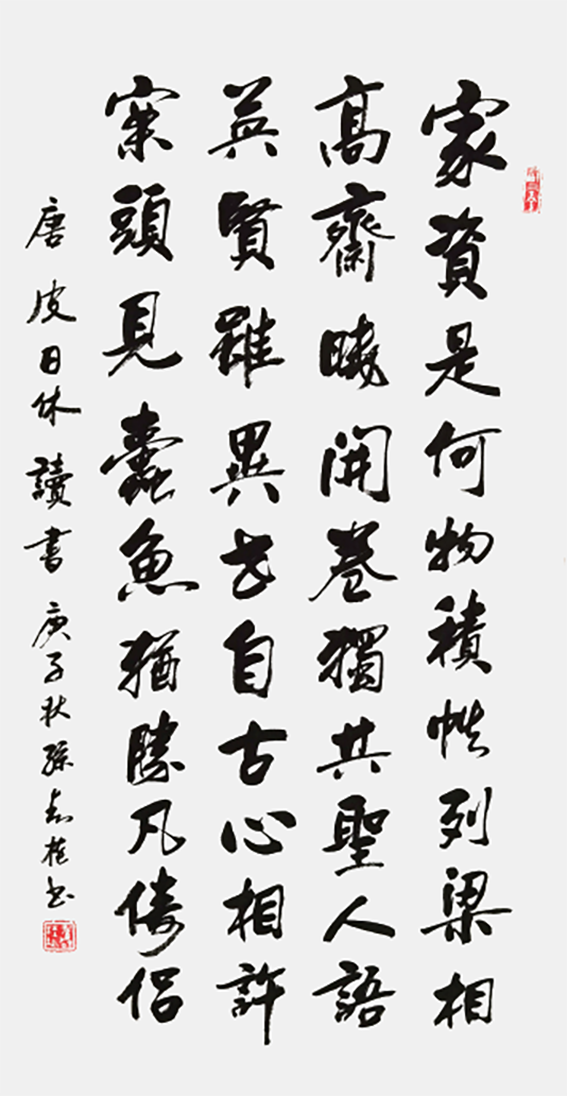 家資是何物積帙列梁相
高齋曉開卷獨共聖人語
英賢雖異世自古心相許
案頭見蠹魚猶勝凡儔侶
唐皮日休讀書 庚子秋孫書